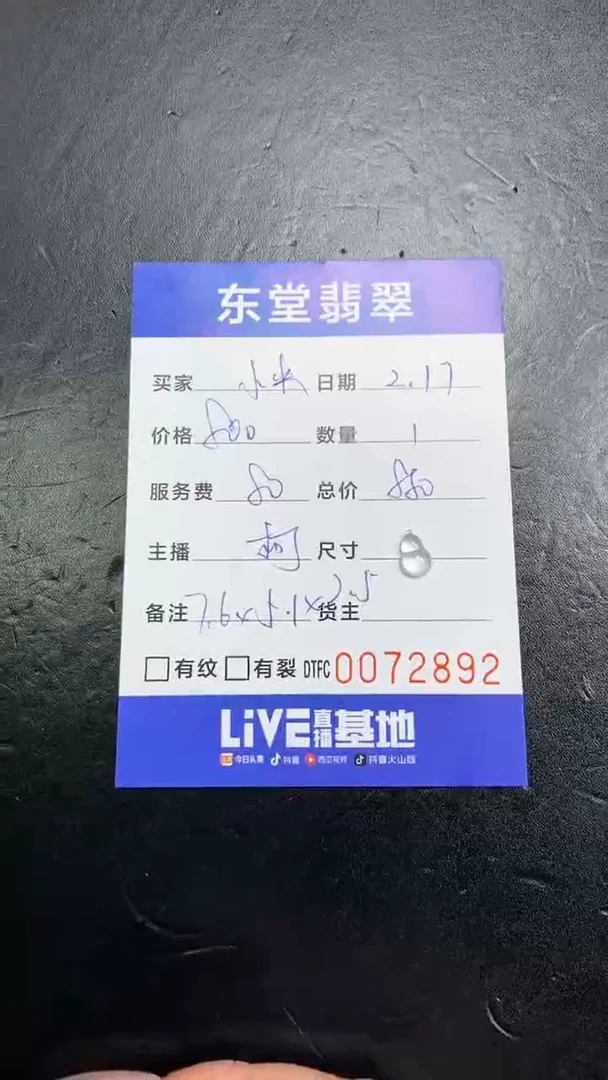 东堂翡翠
买家 小米 日期 2.17
价格 800 数量 1
服务费 80 总价 880
主播 柯 尺寸
备注 7.6x5.1x2.5 货主
有纹 有裂 DTFC 0072892
LiVE直播基地
今日头条 抖音 西瓜视频 抖音火山版